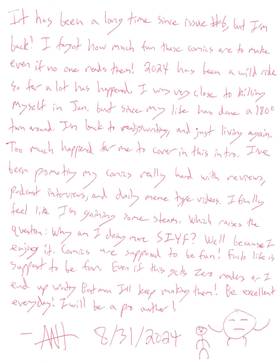 It has been a long time since issue #6, but I'm
back! I forgot how much fun these comics are to make
even if no one reads them! 2024 has been a wild ride
so far a lot has happened. I was very close to killing
myself in Jan. but since my life has done a 180°
turn around. I'm back to and just living again.
Too much happened for me to cover in this intro. I've
been promoting my comics really hard with reviews,
podcast interviews, and daily meme type videos. I finally
feel like I'm gaining some steam. Which raises the
question: Why am I doing more S.I.Y.F? Well because I
enjoy it. Comics are supposed to be fun! Fuck life is
support to be fun. Even if this gets zero reads or I
end up writing Batman I'll keep making them! Be excellent
everyday! I will be a pro author!
- ANT 8/31/2024